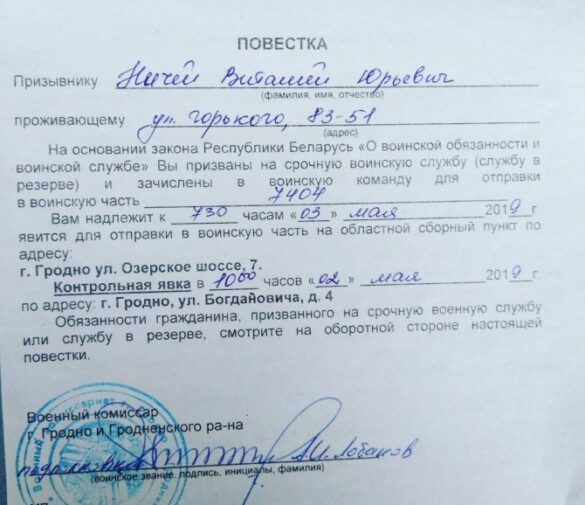 ПОВЕСТКА
Призывнику Ничей Виталий Юрьевич
(фамилия, имя, отчество)
проживающему ул. Горького, 83-51
(адрес)
На основании закона Республики Беларусь «О воинской обязанности и
воинской службе» Вы призваны на срочную воинскую службу (службу в
резерве) и зачислены в воинскую команду для отправки
в воинскую часть 7404
Вам надлежит к 730 часам «03» мая 2019 г.
явится для отправки в воинскую часть на областной сборный пункт по
адресу:
г. Гродно ул. Озерское шоссе, 7.
Контрольная явка в 1000 часов «02» мая 2019 г.
по адресу: г. Гродно, ул. Богдановича, д. 4
Обязанности гражданина, призванного на срочную военную службу
или службу в резерве, смотрите на оборотной стороне настоящей
повестки.
Военный комиссар
г. Гродно и Гродненского ра-на
подполковник А.И. Лобанов
(воинское звание, подпись, инициалы, фамилия)